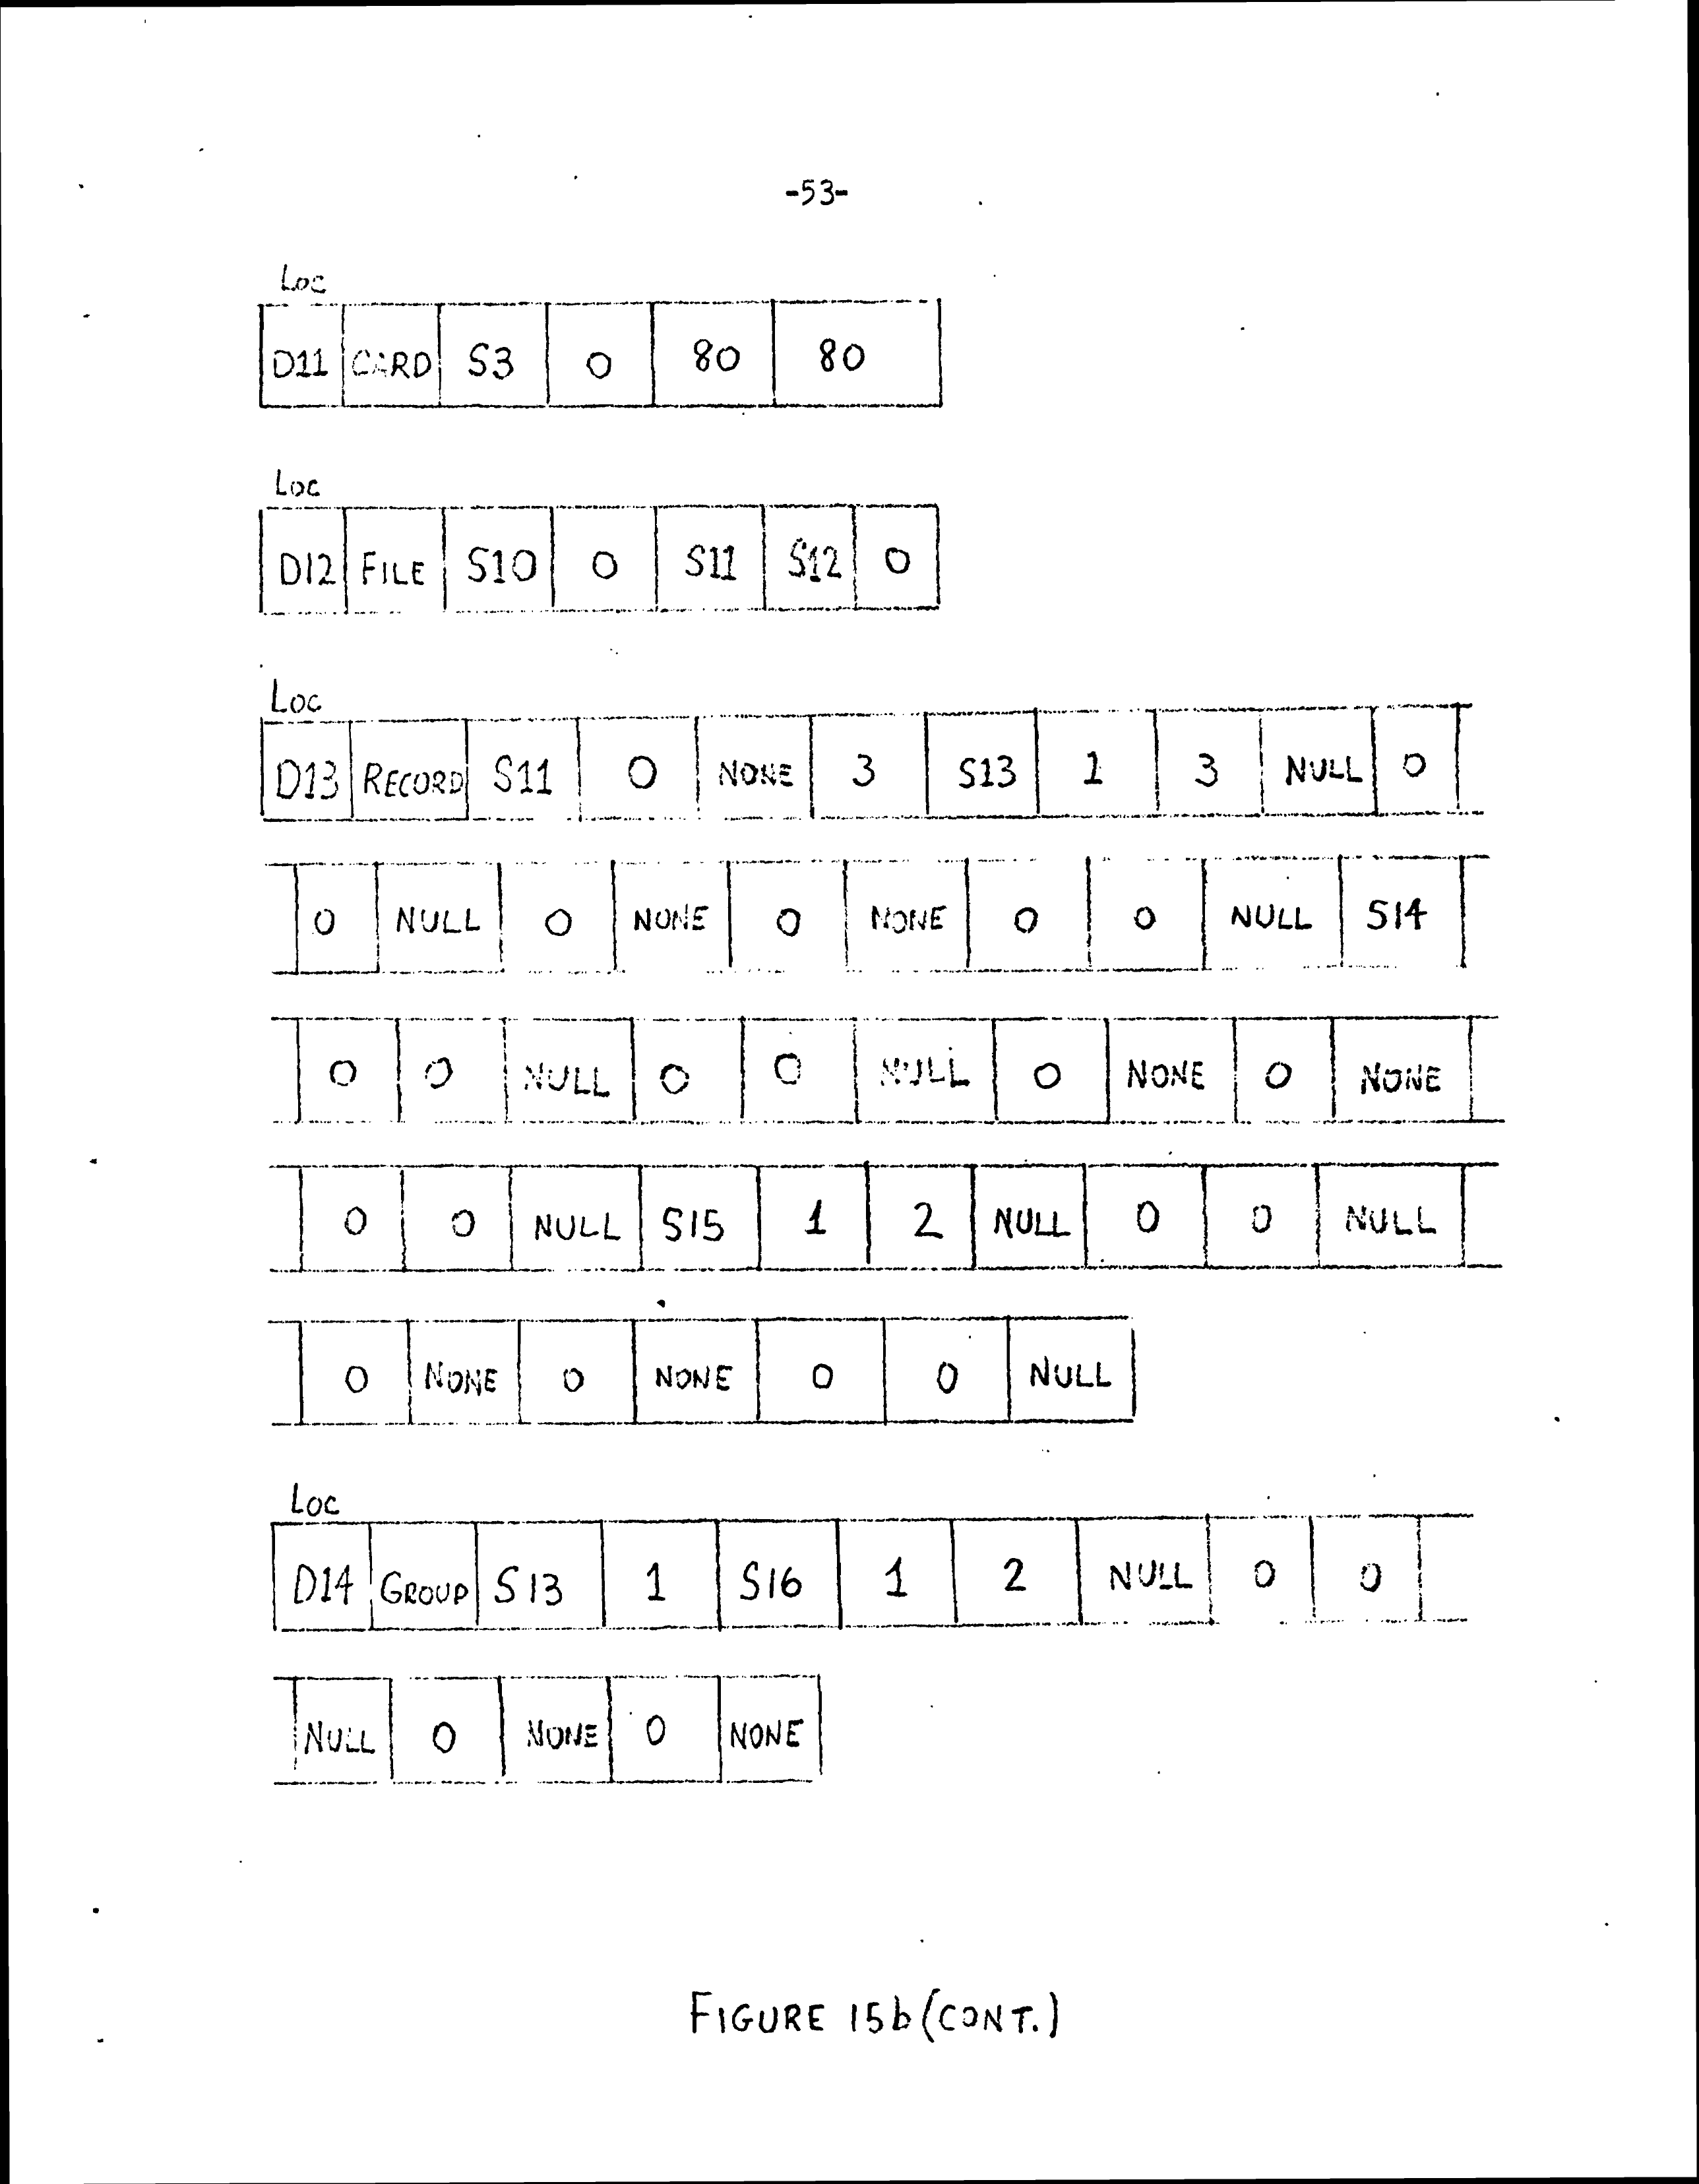 -53-
Loc
D11 CARD S3 0 80 80
Loc
D12 FILE S10 0 S11 S12 0
Loc
D13 RECORD S11 0 NONE 3 S13 1 3 NULL 0
0 NULL 0 NONE 0 NONE 0 0 NULL S14
0 0 NULL 0 0 NULL 0 NONE 0 NONE
0 0 NULL S15 1 2 NULL 0 0 NULL
0 NONE 0 NONE 0 0 NULL
Loc
D14 GROUP S13 1 S16 1 2 NULL 0 0
NULL 0 NONE 0 NONE
FIGURE 15b (CONT.)